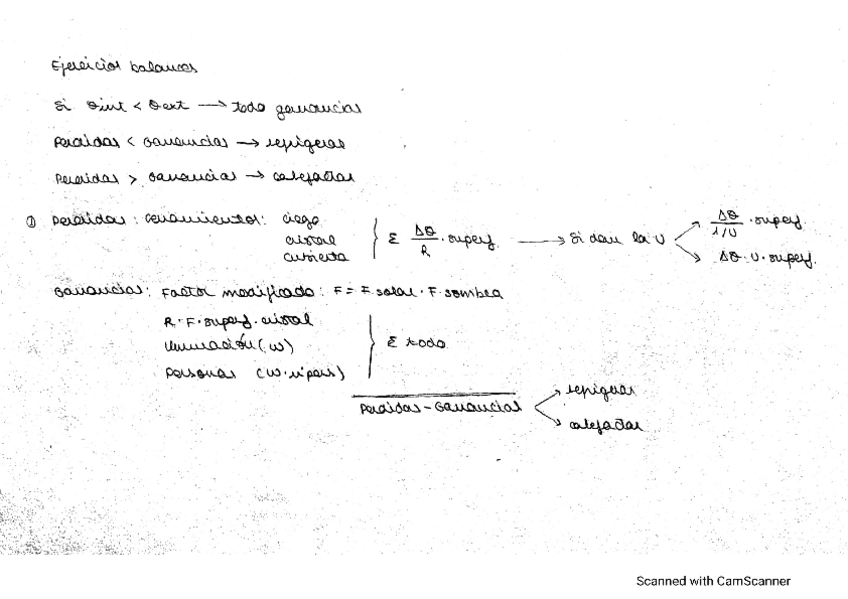 Ejercicios balances
Si θint < θext → todo ganancias
Perdidas < Ganancias → refrigerar
Perdidas > Ganancias → calefactar
① Perdidas: cerramientos: ciego
cristal
cubierta
Σ Δθ/R · superf. → Si dan la U
Δθ/1/U · superf.
Δθ · U · superf.
Ganancias: Factor modificado: F = F. solar · F. sombra
R · F · superf. cristal
Iluminación (W)
Personas (W · nºpers)
Σ todo
Perdidas - Ganancias
refrigerar
calefactar
Scanned with CamScanner